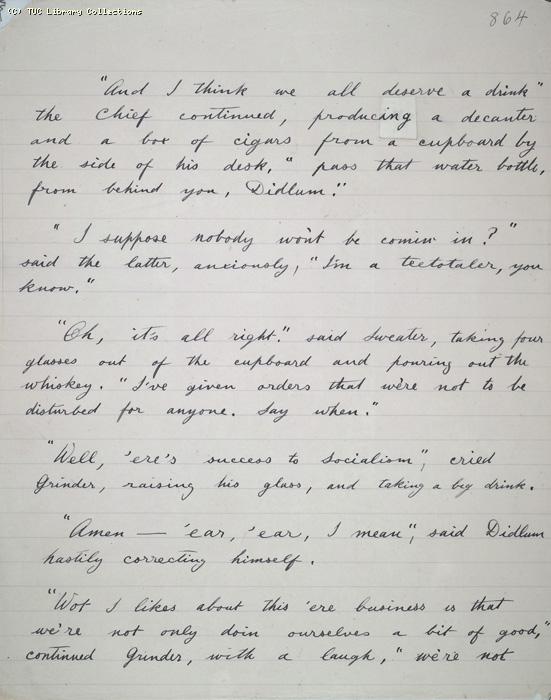 (C) TUC Library Collections
864
"And I think we all deserve a drink"
the Chief continued, producing a decanter
and a box of cigars from a cupboard by
the side of his desk, "pass that water bottle,
from behind you, Didlum."
"I suppose nobody won't be comin' in?"
said the latter, anxiously, "I'm a teetotaler, you
know."
"Oh, it's all right." said Sweater, taking four
glasses out of the cupboard and pouring out the
whiskey. "I've given orders that we're not to be
disturbed for anyone. Say when."
"Well, 'ere's success to Socialism", cried
Grinder, raising his glass, and taking a big drink.
"Amen — 'ear, 'ear, I mean", said Didlum
hastily correcting himself.
"Wot I likes about this 'ere business is that
we're not only doin ourselves a bit of good,"
continued Grinder, with a laugh, "we're not